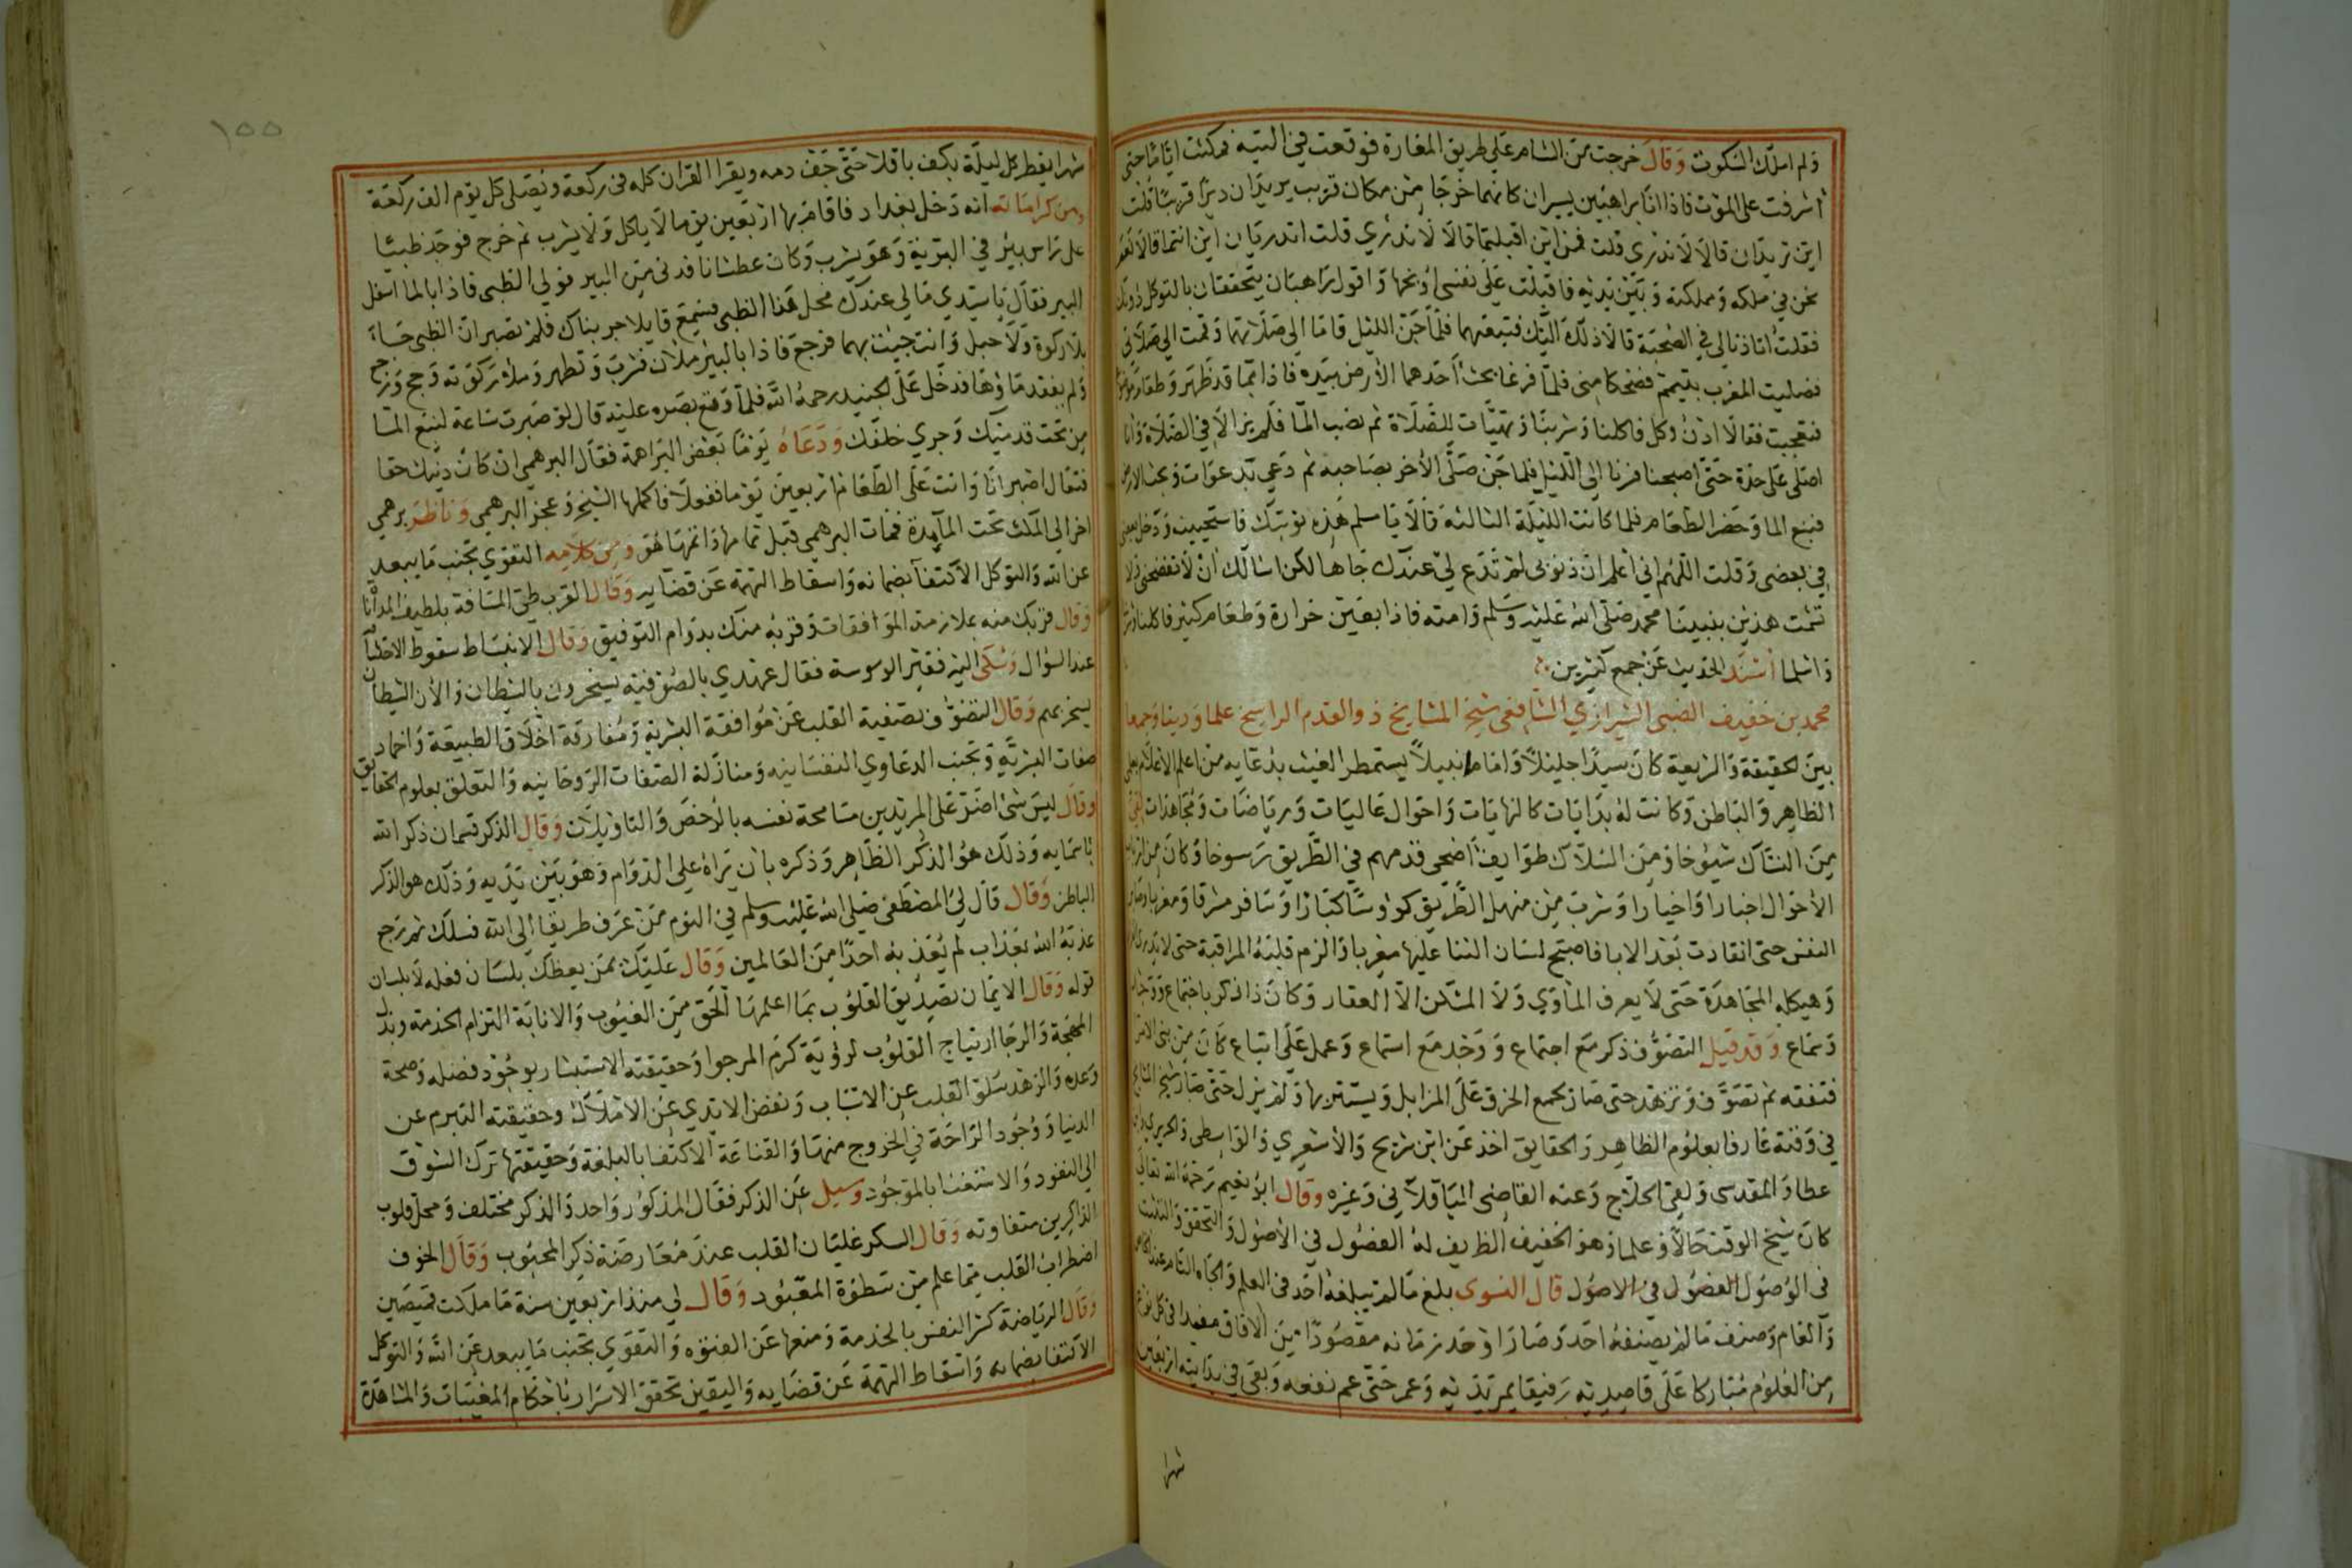 ولم املك السكوت وقال خرجت من الشام على طريق المغارة فوقعت في التيه فمكثت اياما حتى
اشرفت على الموت فاذا انا براهبين يسيران كانهما خرجا من مكان قريب يريدان ديرا قريبا قلت
اين تريدان قالا لا ندري قلت فمن اين اقبلتما قالا لا ندري قلت اتدريان اين انتما قالا نعم
نحن في ملكه ومملكته وبين يديه فاقبلت على نفسي اوبخها واقول راهبان يتحققان بالتوكل دونك
فقلت اتاذنا لي في الصحبة قالا ذلك اليك فتبعتهما فلما جن الليل قاما الى صلاتهما وقمت الى صلاتي
فصليت المغرب بتيمم فضحكا مني فلما فرغا بحث احدهما الارض بيده فاذا بما قد ظهر وطعام
فتعجبت فقالا ادن وكل فاكلنا وشربنا وتهيات للصلاة ثم نضب الما فلم يزالا في الصلاة وانا
اصلي على حدة حتى اصبحنا فسرنا الى الليل فلما جن صلى الاخر بصاحبه ثم دعى بدعوات وبحث الارض
فنبع الما وحضر الطعام فلما كانت الليلة الثالثة قالا يا مسلم هذه نوبتك فاستحييت ودخل بعضي
في بعضي وقلت اللهم اني اعلم ان ذنوبي لم تدع لي عندك جاها لكن اسالك ان لا تفضحني ولا
تشمت هذين بنبينا محمد صلى الله عليه وسلم وامته فاذا بعين خرارة وطعام كثير فاكلنا وشربنا
واسلما اسند الحديث عن جمع كثيرين
محمد بن خفيف الضبي الشيرازي الشافعي شيخ المشايخ ذو القدم الراسخ علما ودينا وجمعا
بين الحقيقة والشريعة كان سيدا جليلا واماما نبيلا يستمطر الغيث بدعايه من اعلم الاعلام بعلمي
الظاهر والباطن وكانت له بدايات كالنهايات واحوال عاليات ورياضات ومجاهدات لقي
من النساك شيوخا ومن السلاك طوايف اضحى قدمهم في الطريق رسوخا وكان من ارباب
الاحوال اخبارا واخيارا وشرب من منهل الطريق كووسا كبارا وسافر مشرقا ومغربا
النفس حتى انقادت بعد الابا فاصبح لسان الثنا عليها مغربا والزم قلبه المراقبة حتى لا
وهيكله المجاهدة حتى لا يعرف الماوي ولا المسكن الا العقار وكان ذا ذكر باجتماع ووجد
وسماع وقد قيل التصوف ذكر مع اجتماع ووجد مع استماع وعمل على اتباع كان من بني الامرا
فتفقه ثم تصوف وتزهد حتى صار يجمع الخرق على المزابل ويستتر بها ولم يزل حتى صار شيخ المشايخ
في وقته عارفا بعلوم الظاهر والحقايق اخذ عن ابن شريح والاشعري والواسطي والجريري
عطا والمقدسي ولقي الحلاج وعنه القاضي الباقلاني وغيره وقال ابو نعيم رحمه الله تعالى
كان شيخ الوقت حالا وعلما وهو الخفيف الظريف له الفضول في الاصول والتحقق والتثبت
في الوصول الفضول في الاصول قال النسوى بلغ ما لم يبلغه احد في العلم والجاه التام عند الخاص
والعام وصنف ما لم يصنفه احد وصار اوحد زمانه مقصودا من الافاق مفيدا في كل نوع
من العلوم مباركا على قاصديه رفيقا بمريديه وعمر حتى عم نفعه وبقى في بدايته اربعين
شهرا
١٥٥
شهرا يفطر كل ليلة بكف باقلا حتى جف دمه ويقرا القران كله في ركعة ويصلي كل يوم الف ركعة
ومن كراماته انه دخل بغداد فاقام بها اربعين يوما لا ياكل ولا يشرب ثم خرج فوجد ظبيا
على راس بير في البرية وهو يشرب وكان عطشانا فدنى من البير فولى الظبى فاذا بالما اسفل
البير فقال يا سيدي مالي عندك محل هذا الظبى فسمع قايلا جربناك فلم تصبر ان الظبى جاء
بلا ركوة ولا حبل وانت جيت بهما فرجع فاذا بالبير ملان فشرب وتطهر وملأ ركوته وحج ورجع
ولم يفقد ماوها فدخل على الجنيد رحمه الله فلما وقع بصره عليه قال لو صبرت ساعة لنبع الما
من تحت قدميك وجري خلفك ودعاه يوما بعض البراهمة فقال البرهمي ان كان دينك حقا
فتعال اصبر انا وانت على الطعام اربعين يوما ففعلا فاكملها الشيخ وعجز البرهمي وناظر برهمي
اخر الى المكث تحت الماء مدة فمات البرهمي قبل تمامها واتمها هو ومن كلامه التقوي تجنب ما يبعد
عن الله والتوكل الاكتفا بضمانه واسقاط التهمة عن قضايه وقال القرب طي المسافة بلطيف المداناة
وقال قربك منه بملازمة الموافقات وقربه منك بدوام التوفيق وقال الانبساط سقوط الاحتشام
عند السوال وشكى اليه فقير الوسوسة فقال عهدي بالصوفية يسخرون بالشيطان والان الشيطان
يسخر بهم وقال التصوف تصفية القلب عن موافقة البشرية ومفارقة اخلاق الطبيعة واخماد
صفات البشرية وتجنب الدعاوي النفسانيه ومنازلة الصفات الروحانيه والتعلق بعلوم الحقايق
وقال ليس شئ اضر على المريدين مسامحة نفسه بالرخص والتاويلات وقال الذكر قسمان ذكر الله
باسمايه وذلك هو الذكر الظاهر وذكره بان يراه على الدوام وهو بين يديه وذلك هو الذكر
الباطن وقال قال لي المصطفى صلى الله عليه وسلم في النوم من عرف طريقا الى الله فسلك ثم رجع
عذبه الله بعذاب لم يعذب به احدا من العالمين وقال عليك بمن يعظك بلسان فعله لا بلسان
قوله وقال الايمان تصديق القلوب بما اعلمها الحق من الغيوب والانابة التزام الخدمة وبذل
المهجة والرجا ارتياح القلوب لرؤية كرم المرجوا وحقيقته الاستبشار بوجود فضله وصحة
وعده والزهد سلو القلب عن الاسباب ونفض الايدي عن الاملاك وحقيقته التبرم عن
الدنيا ووجود الراحة في الخروج منها والقناعة الاكتفا بالبلغة وحقيقتها ترك الشوق
الى المفقود والاستغنا بالموجود وسيل عن الذكر فقال المذكور واحد والذكر مختلف ومحل قلوب
الذاكرين متفاوته وقال السكر غليان القلب عند معارضة ذكر المحبوب وقال الخوف
اضطراب القلب بما علم من سطوة المعبود وقال لي منذ اربعين سنة ما ملكت قميصين
وقال الرياضة كسر النفس بالخدمة ومنعها عن الفتوه والتقوي تجنب ما يبعد عن الله والتوكل
الاكتفا بضمانه واسقاط التهمة عن قضايه واليقين تحقق الاسرار باحكام المغيبات والمشاهدة